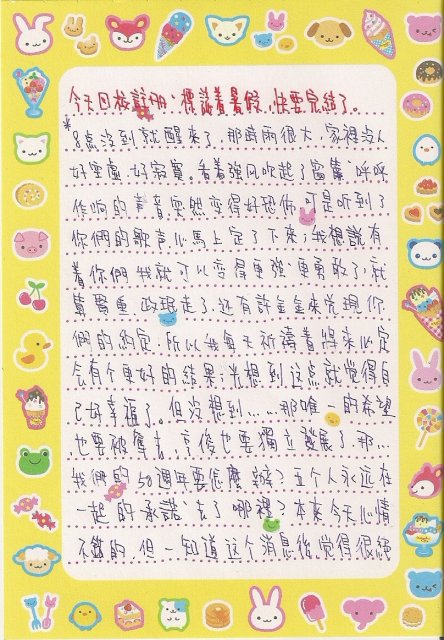 今天回校註冊，標誌着暑假，快要完結了。
*8点沒到就醒來了，那時雨很大，家裡沒人
好空虛，好寂寞。看着強風吹起了窗簾，呼呼
作响的声音突然变得好恐佈，可是听到了
你們的歌声心馬上定了下來；我想說有
着你們我就可以变得更強，更勇敢了，就
算賢重，政珉走了，还有許金金來兌現你
們的約定，所以我每天祈禱着將來必定
会有个更好的結果；光想到这点就覺得自
己好幸福了。但沒想到......那唯一的希望
也要被奪去，亨俊也要獨立發展了，那...
我們的50週年要怎麼辦？五个人永远在
一起的承諾去了哪裡？本來今天心情
不錯的，但一知道这个消息後，覺得很絕